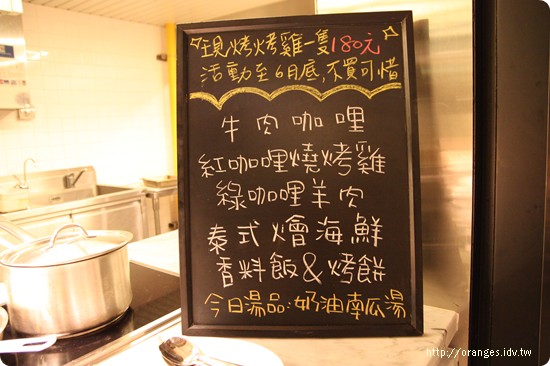 ☆現烤烤雞一隻180元☆
活動至6月底,不買可惜
牛肉咖哩
紅咖哩燒烤雞
綠咖哩羊肉
泰式燴海鮮
香料飯&烤餅
今日湯品:奶油南瓜湯
http://oranges.idv.tw